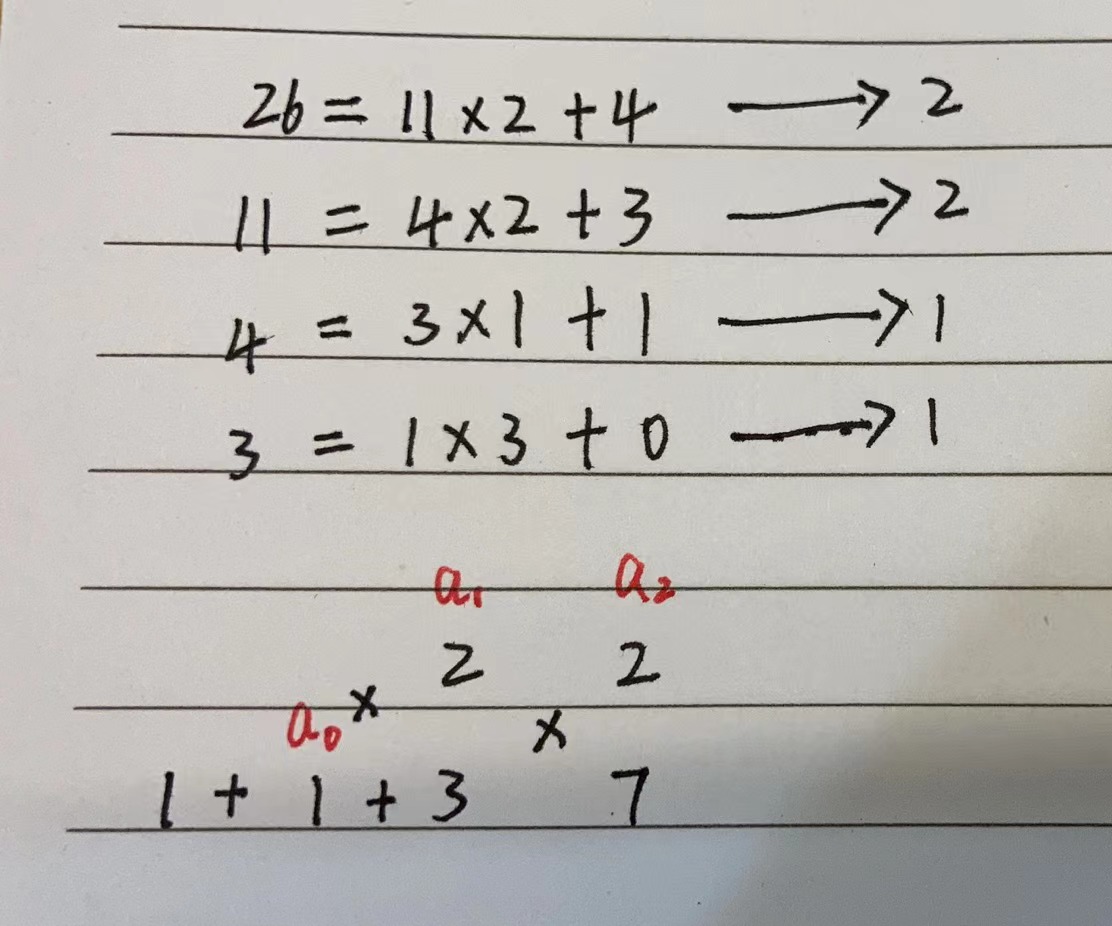 26 = 11 × 2 + 4 ⟶ 2
11 = 4 × 2 + 3 ⟶ 2
4 = 3 × 1 + 1 ⟶ 1
3 = 1 × 3 + 0 ⟶ 1
a₁ a₂
2 2
a₀ × ×
1 + 1 + 3 7